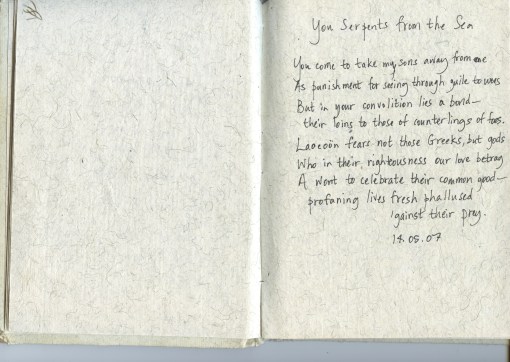 You Serpents from the Sea
You come to take my sons away from me
As punishment for seeing through guile to woes
But in your convolition lies a bond—
their loins to those of counterlings of foes.
Laocoön fears not those Greeks, but gods
Who in their righteousness our love betray
A wont to celebrate their common good—
profaning lives fresh phallused
'gainst their prey.
14.05.07